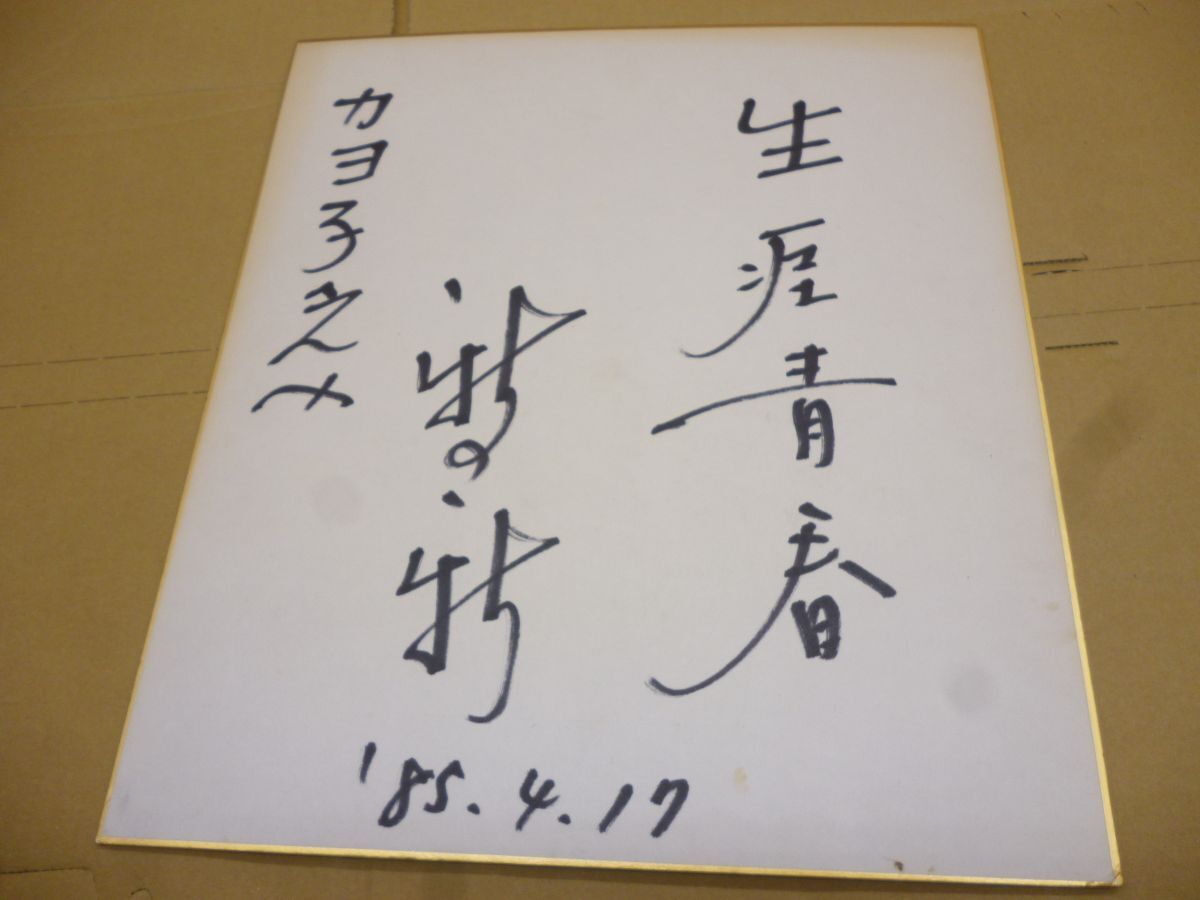 生涯青春
新の新
カヨ子さんへ
'85.4.17